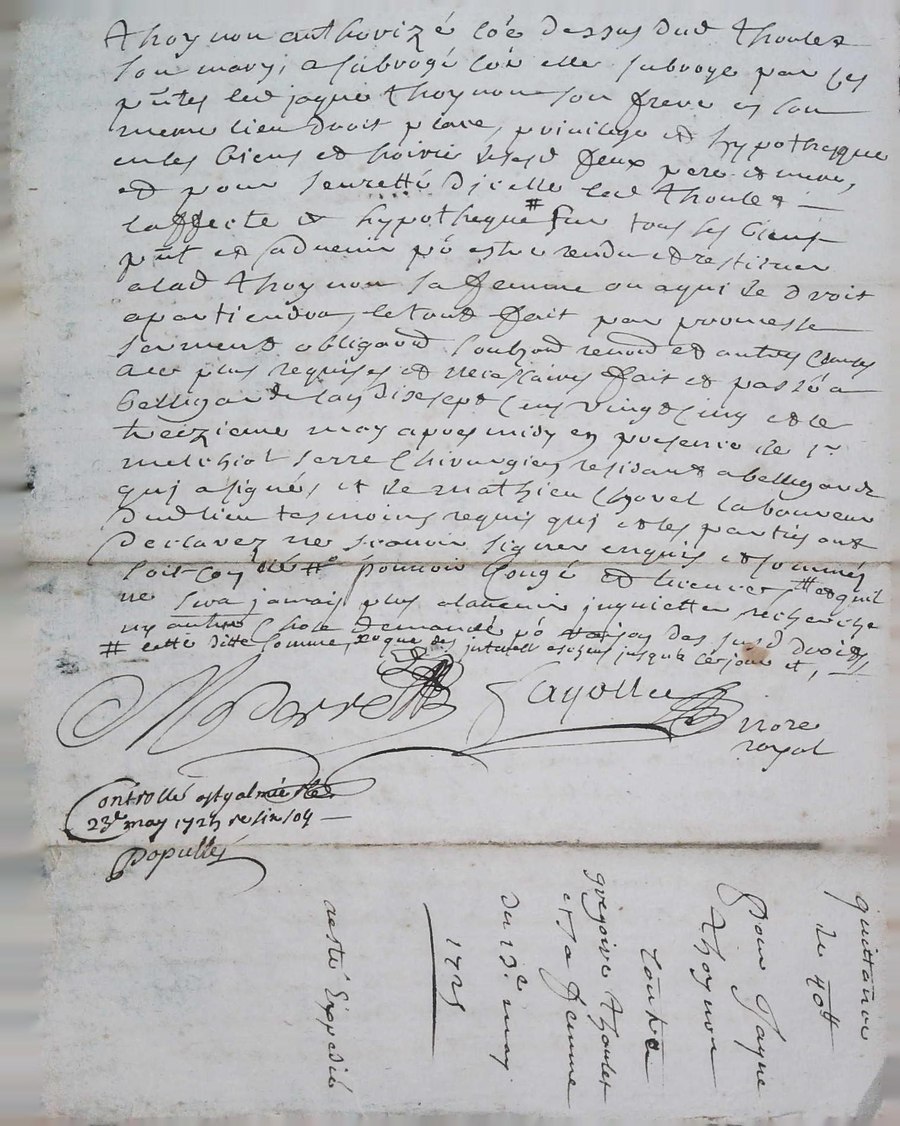 Thoynon authorizé coe dessus dud Thoulet
son mary, a subrogé coe elle subroge par ces
pntes led jaque Thoynon son frere en son
meme lieu droit place, privilege et hypotheque
en les biens et hoirie desd feux pere et mere,
et pour seuretté dicelle led Thoulet
laffecte et hypotheque # sur tous ses biens
pnt et advenir po estre rendu et restituer
a lad Thoynon sa femme ou a qui de droit
apartiendra, le tout fait par promesse
serment obligaon soubzon renon et autres clauses
ace plus requises et necessaires fait et passé a
bellegarde lan disesept cens vingt cinq et le
treizieme may apres midy en presence de sr
melchiol serre chirurgien residant a bellegarde
qui a signés, et de mathieu laboureur
dud lieu tesmoins requis qui et les parties ont
declarez ne scavoir signer enquis et sommés
soit con lé # pouvoir et # et quil
ne sera jamais plus aladvenir inquietter recherche
ny autre chose demandé po des susd droits
# cette ditte somme, escheus jusqua ce jour et,
Serre Fayolle nore
royal
Controllé a st galmier le
23e may 1725 re
Populle
quittance
de 40tt
Pour Jaque
Thoynon
Contre
gregoire Thoulet
et sa femme
du 13e may
1725
resté Expedié